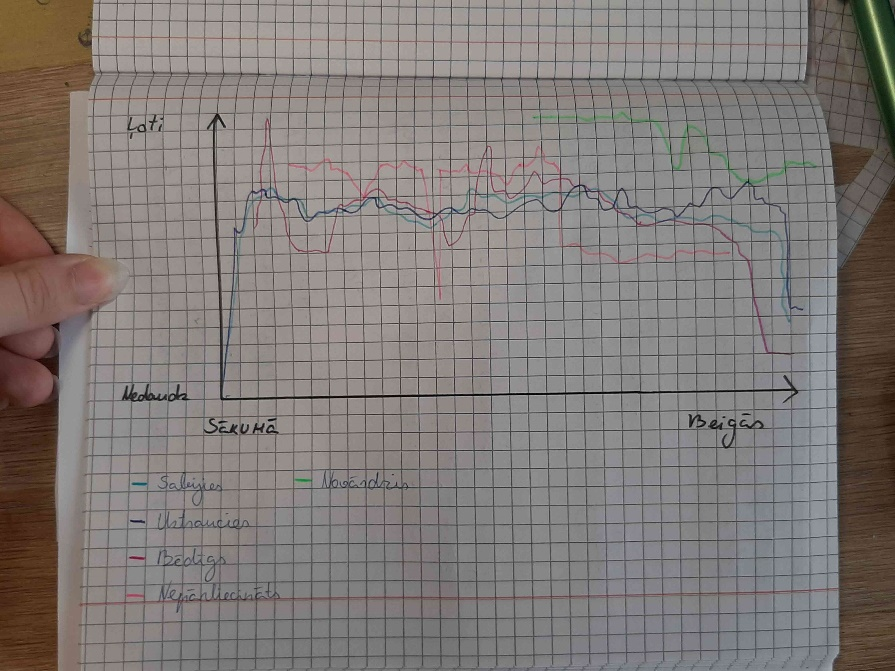 Ļoti
Nedaudz
SĀKUMĀ
Beigās
Satraucies
Bēdīgs
Nepārliecināts
Novārdzis